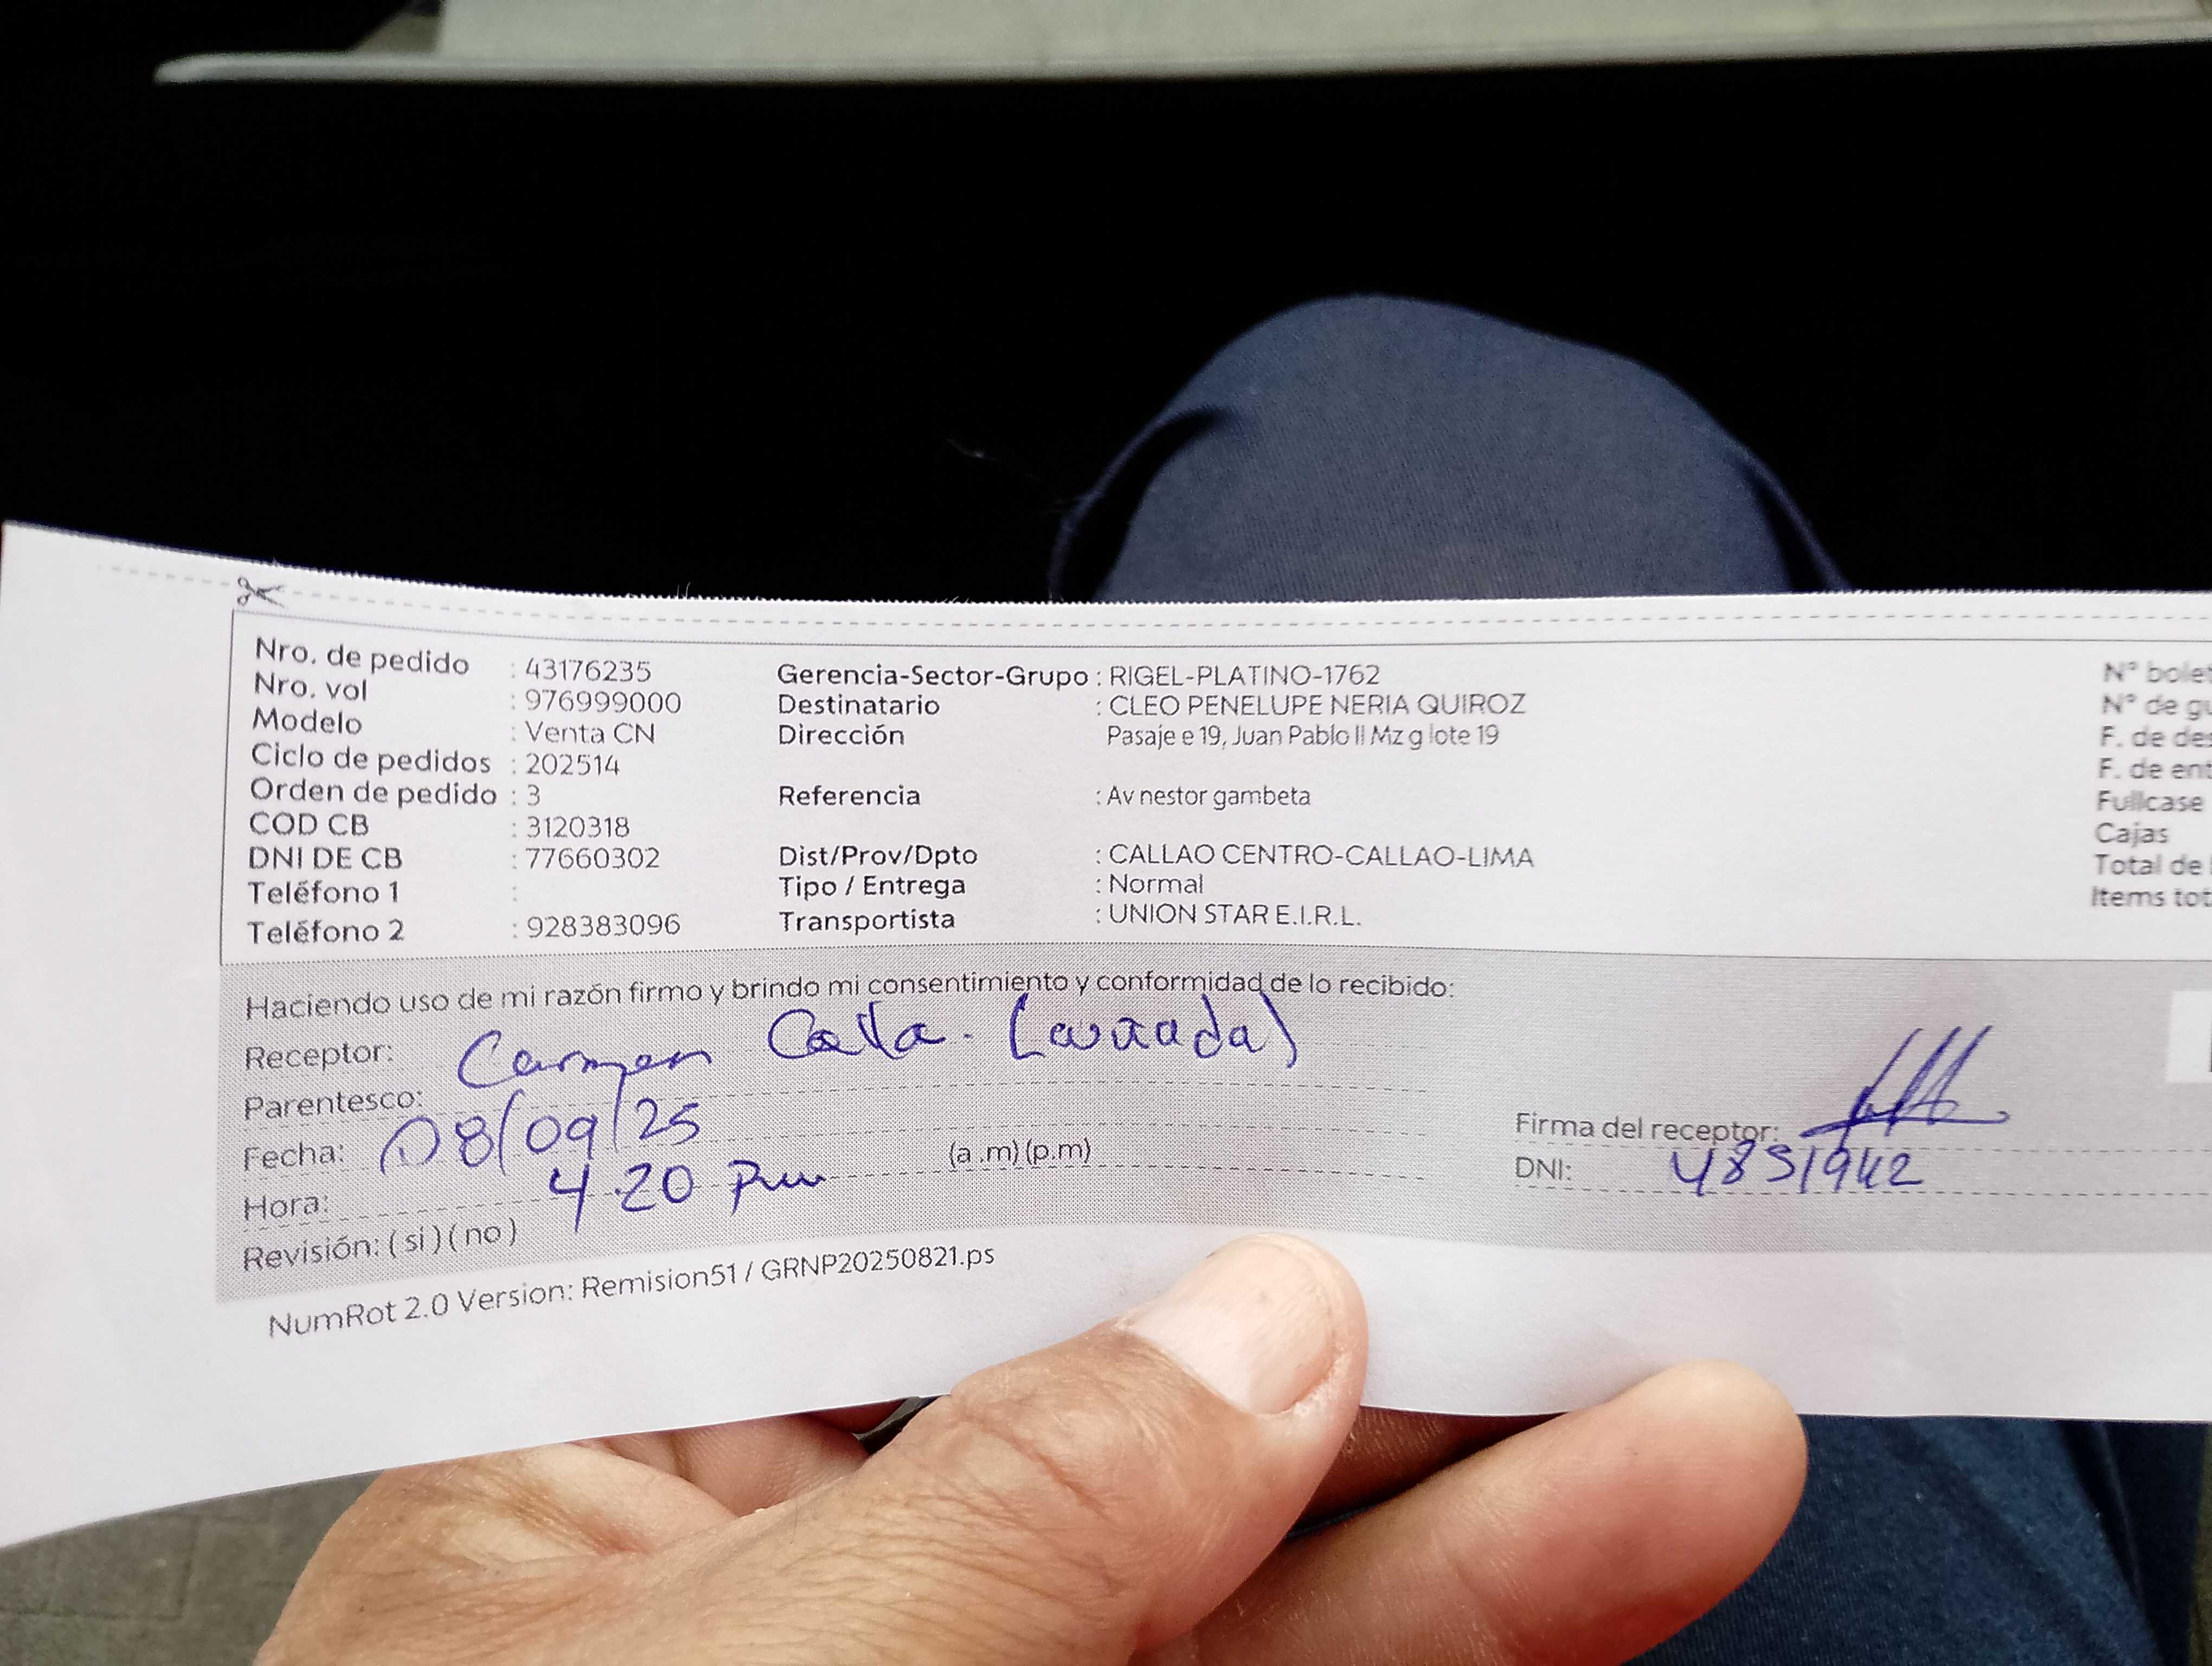 Nro. de pedido : 43176235
Nro. vol : 976999000
Modelo : Venta CN
Ciclo de pedidos : 202514
Orden de pedido : 3
COD CB : 3120318
DNI DE CB : 77660302
Teléfono 1 :
Teléfono 2 : 928383096
Gerencia-Sector-Grupo : RIGEL-PLATINO-1762
Destinatario : CLEO PENELUPE NERIA QUIROZ
Dirección Pasaje e 19, Juan Pablo II Mz g lote 19
Referencia : Av nestor gambeta
Dist/Prov/Dpto : CALLAO CENTRO-CALLAO-LIMA
Tipo / Entrega : Normal
Transportista : UNION STAR E.I.R.L.
N° bolet
N° de gu
F. de des
F. de ent
Fullcase
Cajas
Total de
Items tot
Haciendo uso de mi razón firmo y brindo mi consentimiento y conformidad de lo recibido:
Receptor: Carmen
Parentesco:
Fecha: 08/09/25
Hora: 4.20 pm (a.m)(p.m)
Revisión: (si)(no)
Firma del receptor:
DNI:
NumRot 2.0 Version: Remision51 / GRNP20250821.ps